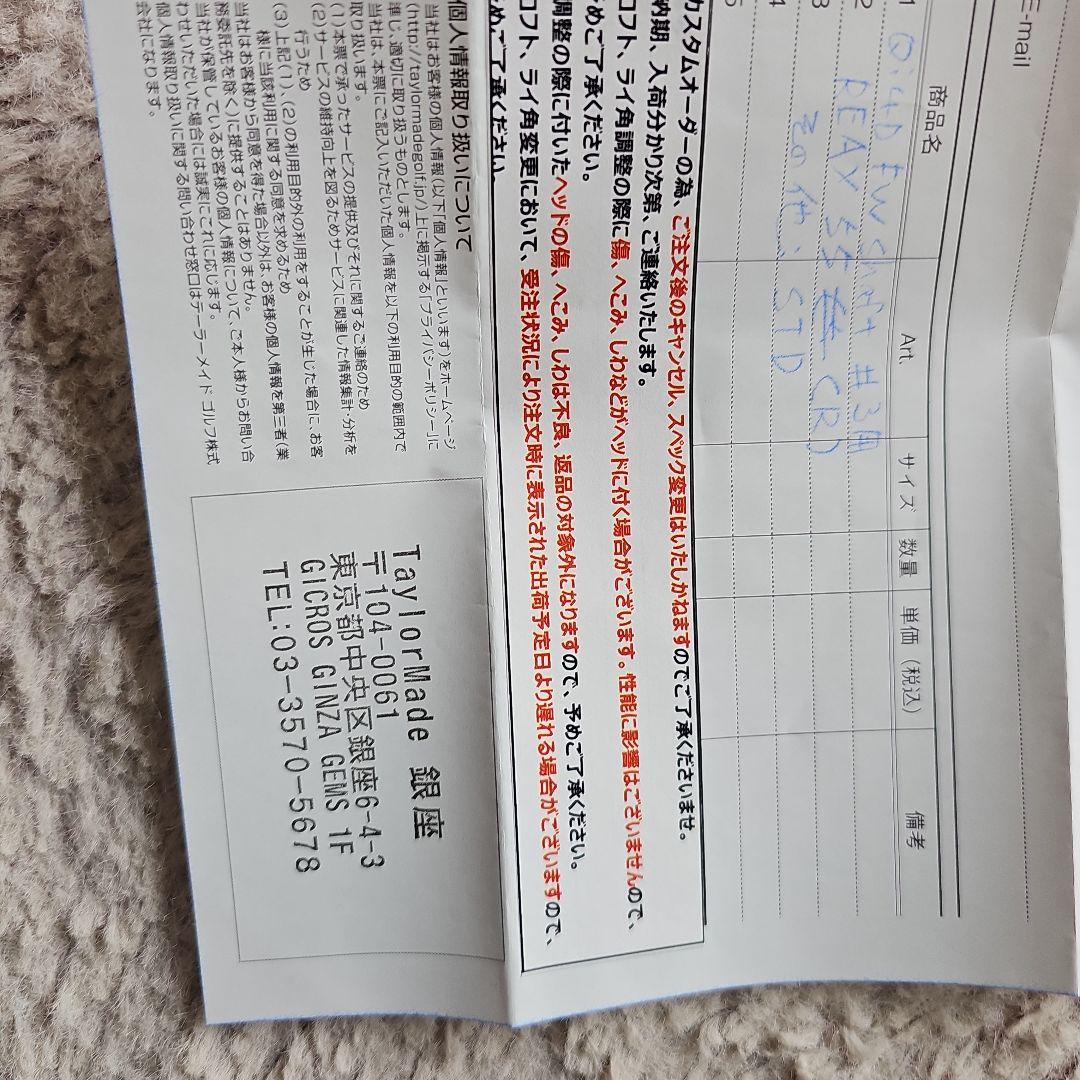 E-mail
商品名 Art. サイズ 数量 単価（税込） 備考
1 Qi4D FW shaft #3用
2 REAX 55 (R)
3 その他: STD
4
5
カスタムオーダーの為、ご注文後のキャンセル、スペック変更はいたしかねますのでご了承くださいませ。
納期、入荷分かり次第、ご連絡いたします。
ロフト、ライ角調整の際に傷、へこみ、しわなどがヘッドに付く場合がございます。性能に影響はございませんので、
予めご了承ください。
調整の際に付いたヘッドの傷、へこみ、しわは不良、返品の対象外になりますので、予めご了承ください。
ロフト、ライ角変更において、受注状況により注文時に表示された出荷予定日より遅れる場合がございますので、
予めご了承ください。
個人情報取り扱いについて
当社はお客様の個人情報（以下「個人情報」といいます）をホームページ
(http://taylormadegolf.jp/)上に掲示する「プライバシーポリシー」に
準じ、適切に取り扱うものとします。
当社は、本票にご記入いただいた個人情報を以下の利用目的の範囲内で
取り扱います。
(1)本票で承ったサービスの提供及びそれに関するご連絡のため
(2)サービスの維持向上を図るためサービスに関連した情報集計・分析を
行うため
(3)上記(1)、(2)の利用目的外の利用をすることが生じた場合に、お客
様に当該利用に関する同意を求めるため
当社はお客様から同意を得た場合以外は、お客様の個人情報を第三者（業
務委託先を除く）に提供することはありません。
当社が保管しているお客様の個人情報について、ご本人様からお問い合
わせいただいた場合には誠実にこれに応じます。
個人情報取り扱いに関する問い合わせ窓口はテーラーメイド ゴルフ株式
会社になります。
TaylorMade 銀座
〒104-0061
東京都中央区銀座6-4-3
GICROS GINZA GEMS 1F
TEL:03-3570-5678